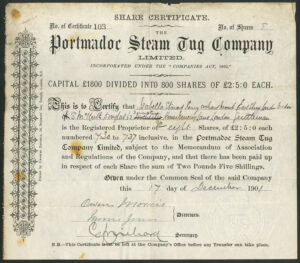 SHARE CERTIFICATE.
No. of Certificate 103 No. of Shares 8
THE
Portmadoc Steam Tug Company
LIMITED.
INCORPORATED UNDER THE "COMPANIES ACT, 1862."
CAPITAL £1800 DIVIDED INTO 800 SHARES OF £2:5:0 EACH.
This is to Certify that
London
is the Registered Proprietor of eight Shares, of £2:5:0 each
numbered 730 to 737 inclusive, in the Portmadoc Steam Tug
Company Limited, subject to the Memorandum of Association
and Regulations of the Company, and that there has been paid up
in respect of each Share the sum of Two Pounds Five Shillings.
Given under the Common Seal of the said Company
this 17 day of December 1901
Owen Morris
Directors.
Secretary.
N.B.—This Certificate must be left at the Company's Office before any Transfer can take place.